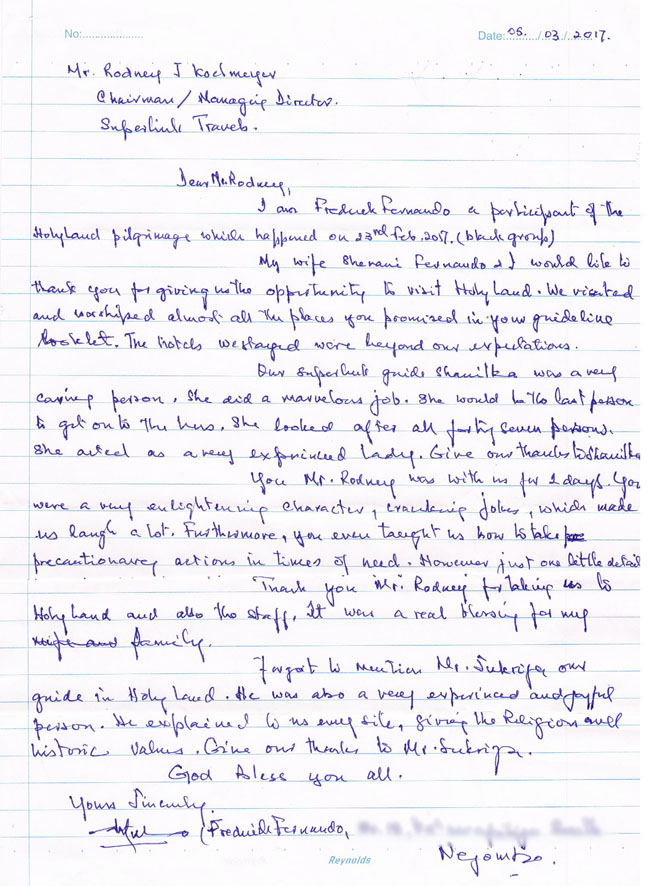 No:.................... Date: 05. / 03 / 2017.
Mr. Rodney J Kochmeyer
Chairman / Managing Director.
Superlink Travels.
Dear Mr. Rodney,
I am Fredrick Fernando a participant of the
Holy Land pilgrimage which happened on 23rd Feb. 2017. (black group)
My wife Sherani Fernando & I would like to
thank you for giving us the opportunity to visit Holy Land. We visited
and worshiped almost all the places you promised in your guideline
booklet. The hotels we stayed were beyond our expectations.
Our superlink guide Shanilka was a very
caring person. She did a marvelous job. She would be the last person
to get on to the bus. She looked after all forty seven persons.
She acted as a very experinced lady. Give our thanks to Shanilka
You Mr. Rodney was with us for 2 days. You
were a very enlightening character, cracking jokes, which made
us laugh a lot. Furthermore, you even taught us how to take
precautionary actions in times of need. However just one little detail
Thank you Mr. Rodney for taking us to
Holy Land and also the staff. It was a real blessing for my
wife and family.
Forgot to mention Mr. Sukriya our
guide in Holy Land. He was also a very experinced and joyful
person. He explained to us every site, giving the Religion and
historic values. Give our thanks to Mr. Sukriya.
God bless you all.
Yours Sincerely.
(Fredrick Fernando,
Negombo.
Reynolds